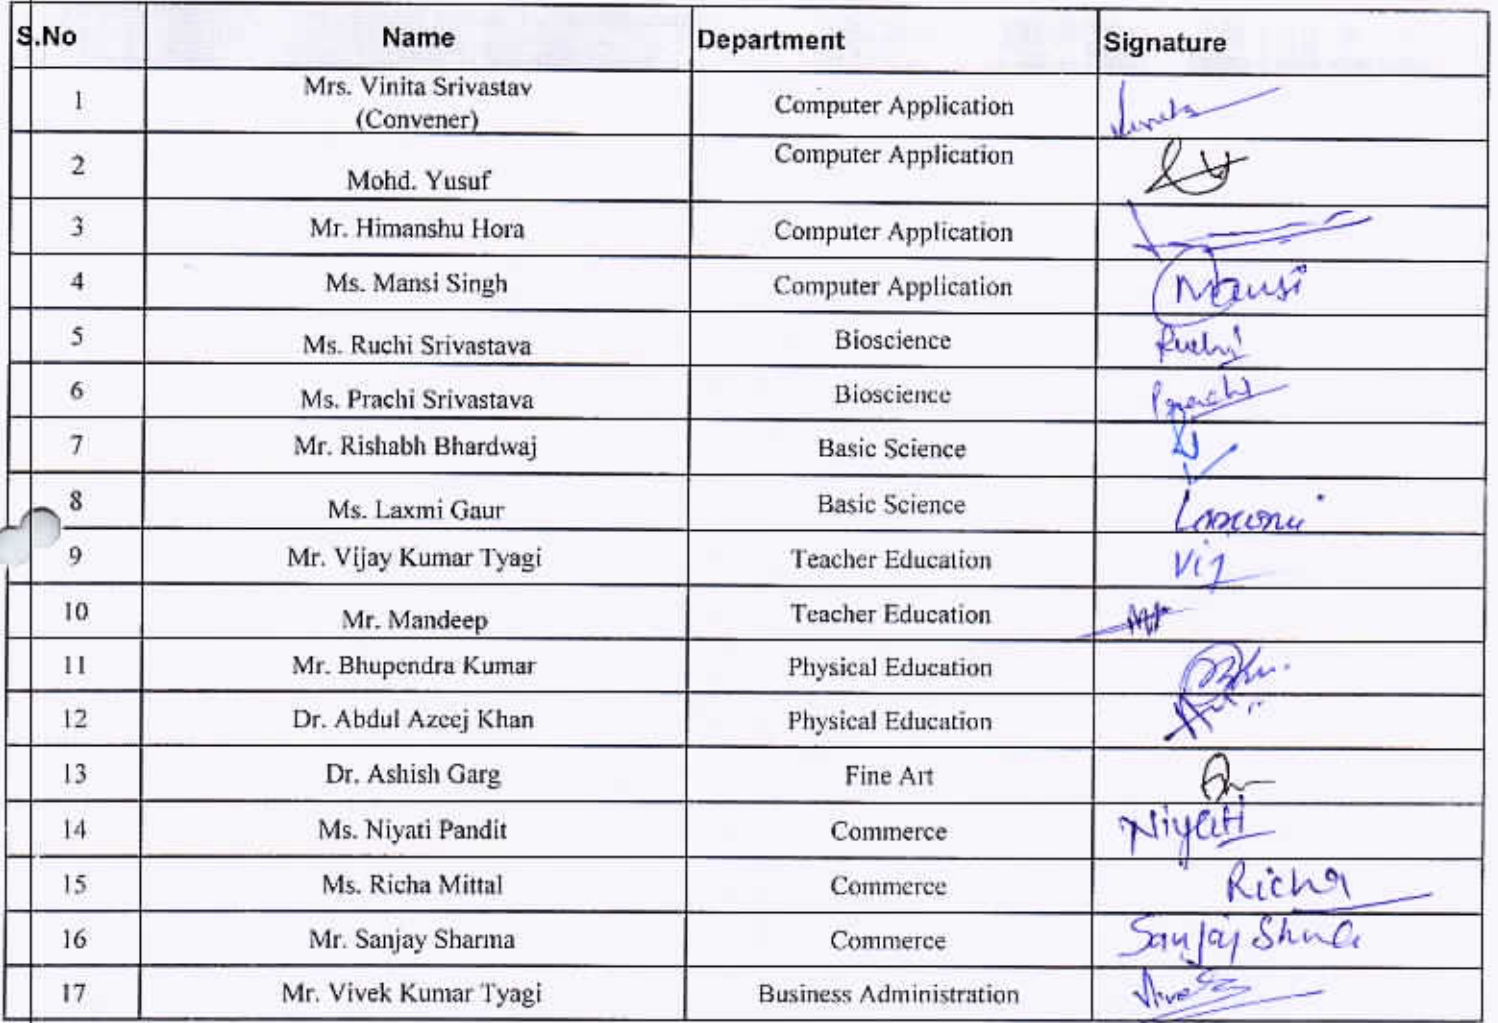 S.No Name Department Signature
1 Mrs. Vinita Srivastav (Convener) Computer Application Vinita
2 Mohd. Yusuf Computer Application
3 Mr. Himanshu Hora Computer Application
4 Ms. Mansi Singh Computer Application Mansi
5 Ms. Ruchi Srivastava Bioscience Ruchi
6 Ms. Prachi Srivastava Bioscience Prachi
7 Mr. Rishabh Bhardwaj Basic Science
8 Ms. Laxmi Gaur Basic Science
9 Mr. Vijay Kumar Tyagi Teacher Education Vij
10 Mr. Mandeep Teacher Education
11 Mr. Bhupendra Kumar Physical Education
12 Dr. Abdul Azeej Khan Physical Education
13 Dr. Ashish Garg Fine Art
14 Ms. Niyati Pandit Commerce Niyati
15 Ms. Richa Mittal Commerce Richa
16 Mr. Sanjay Sharma Commerce Sanjay
17 Mr. Vivek Kumar Tyagi Business Administration